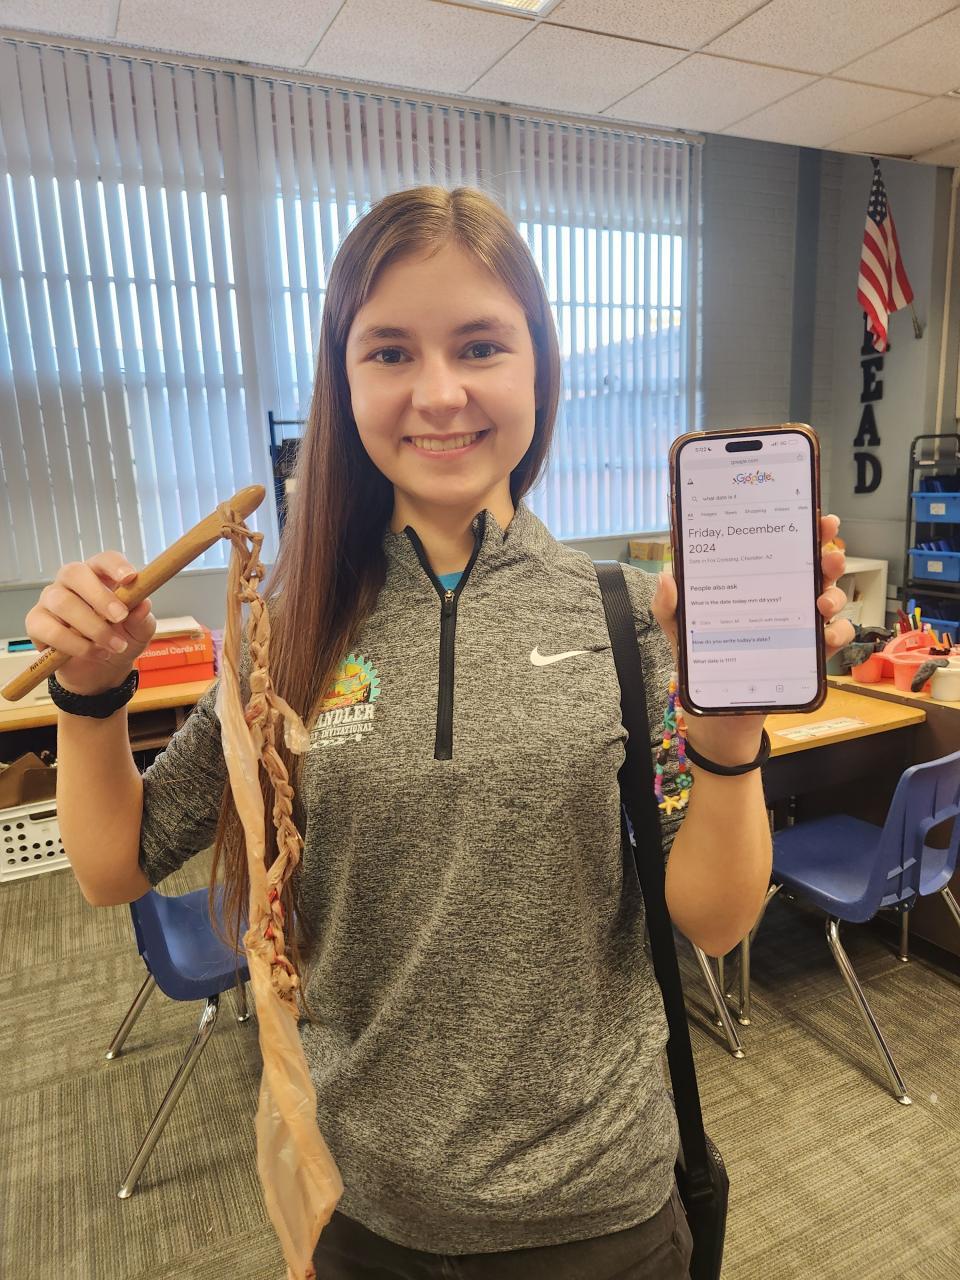 EAD
5:02
google.com
Google
what date is it
All Images News Shopping Videos Web
Friday, December 6,
2024
Date in Fox Crossing, Chandler, AZ
People also ask
What is the date today mm dd yyyy?
Copy Select All Search with Google
How do you write today's date?
What date is 1111?
ctional Cards Kit
ANDLER
INVITATIONAL